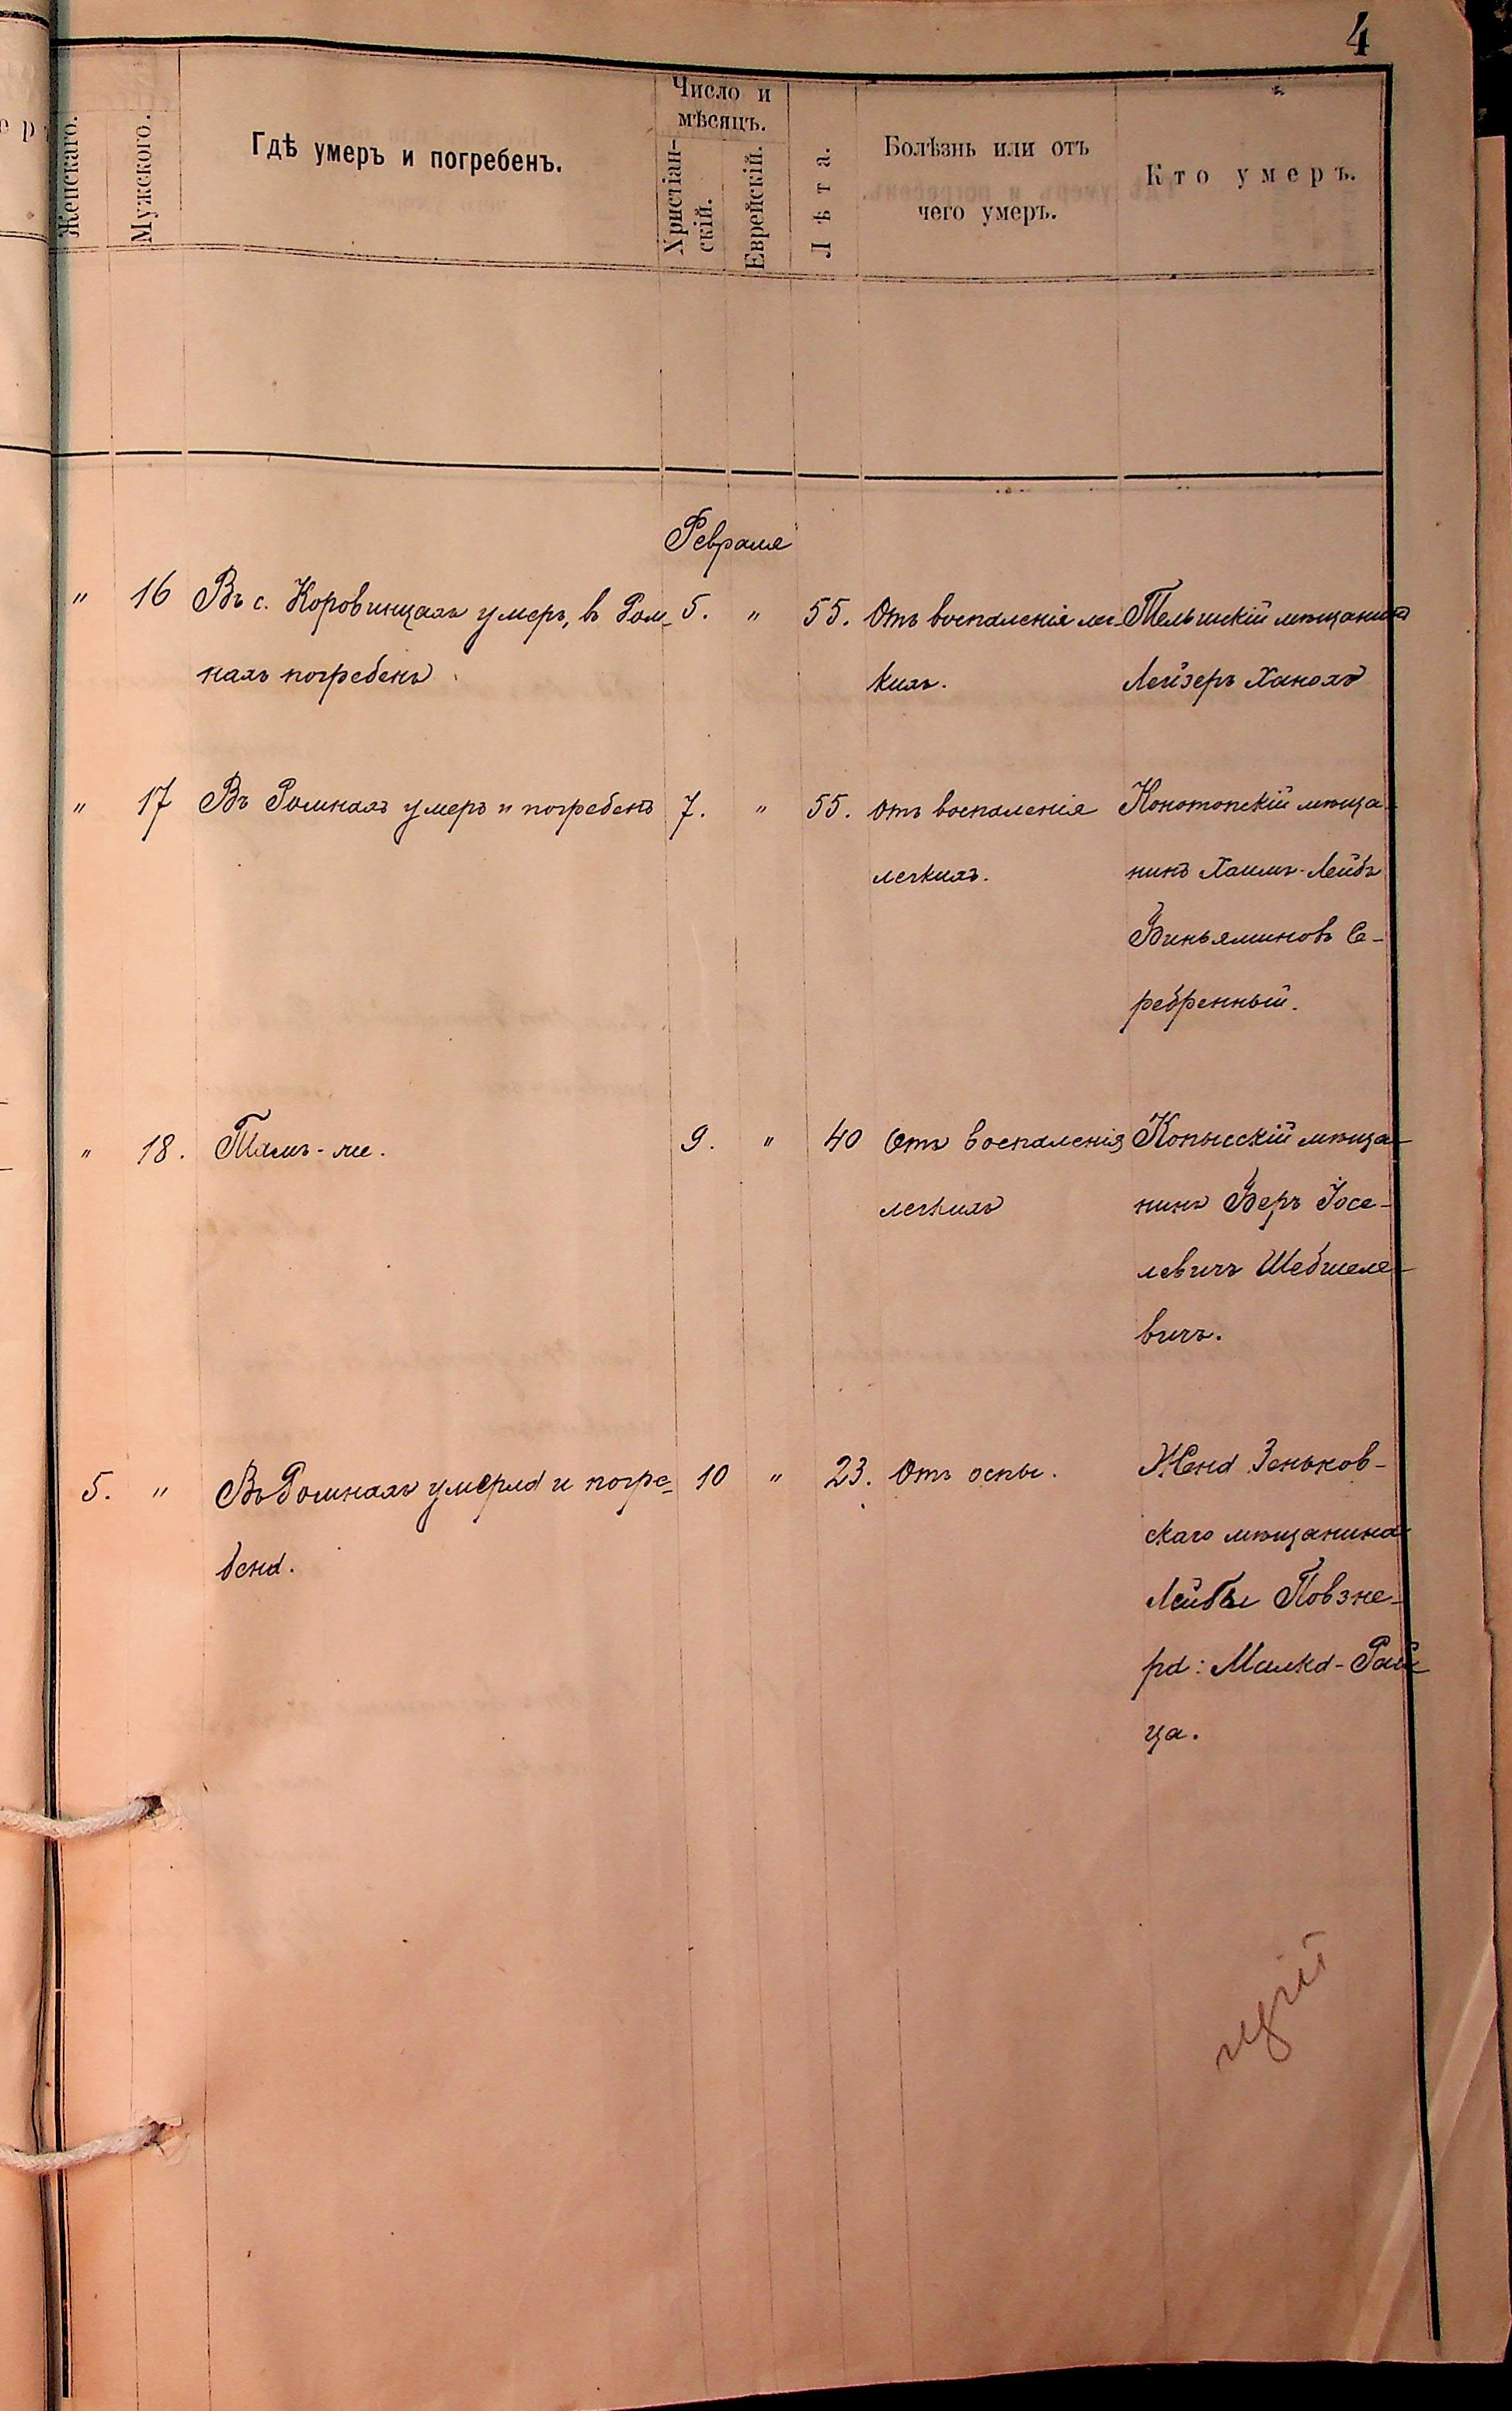 4
Женскаго.
Мужского.
Гдѣ умеръ и погребенъ.
Число и
мѣсяцъ.
Христіан-
скій.
Еврейскій.
Лѣта.
Болѣзнь или отъ
чего умеръ.
Кто умеръ.
Февраля
" 16 Въ с. Коровинцахъ умеръ, въ Ром- 5. " 55. Отъ воспаленія лег- Тельшскій мѣщанинъ
нахъ погребенъ кихъ. Лейзеръ Ханохъ
" 17 Въ Ромнахъ умеръ и погребенъ 7. " 55. Отъ воспаленія Конотопскій мѣща-
легкихъ. нинъ Хаимъ-Лейбъ
Виньяминовъ Се-
ребренный.
" 18. Тамъ-же. 9. " 40 Отъ воспаленія Копысскій мѣща-
легкихъ нинъ Беръ Іосе-
левичъ Шебшеле-
вичъ.
5. " Въ Ромнахъ умерла и погре- 10 " 23. Отъ оспы. Жена Зеньков-
бена. скаго мѣщанина
Лейбы Повзне-
ра: Малка-Рай-
ца.